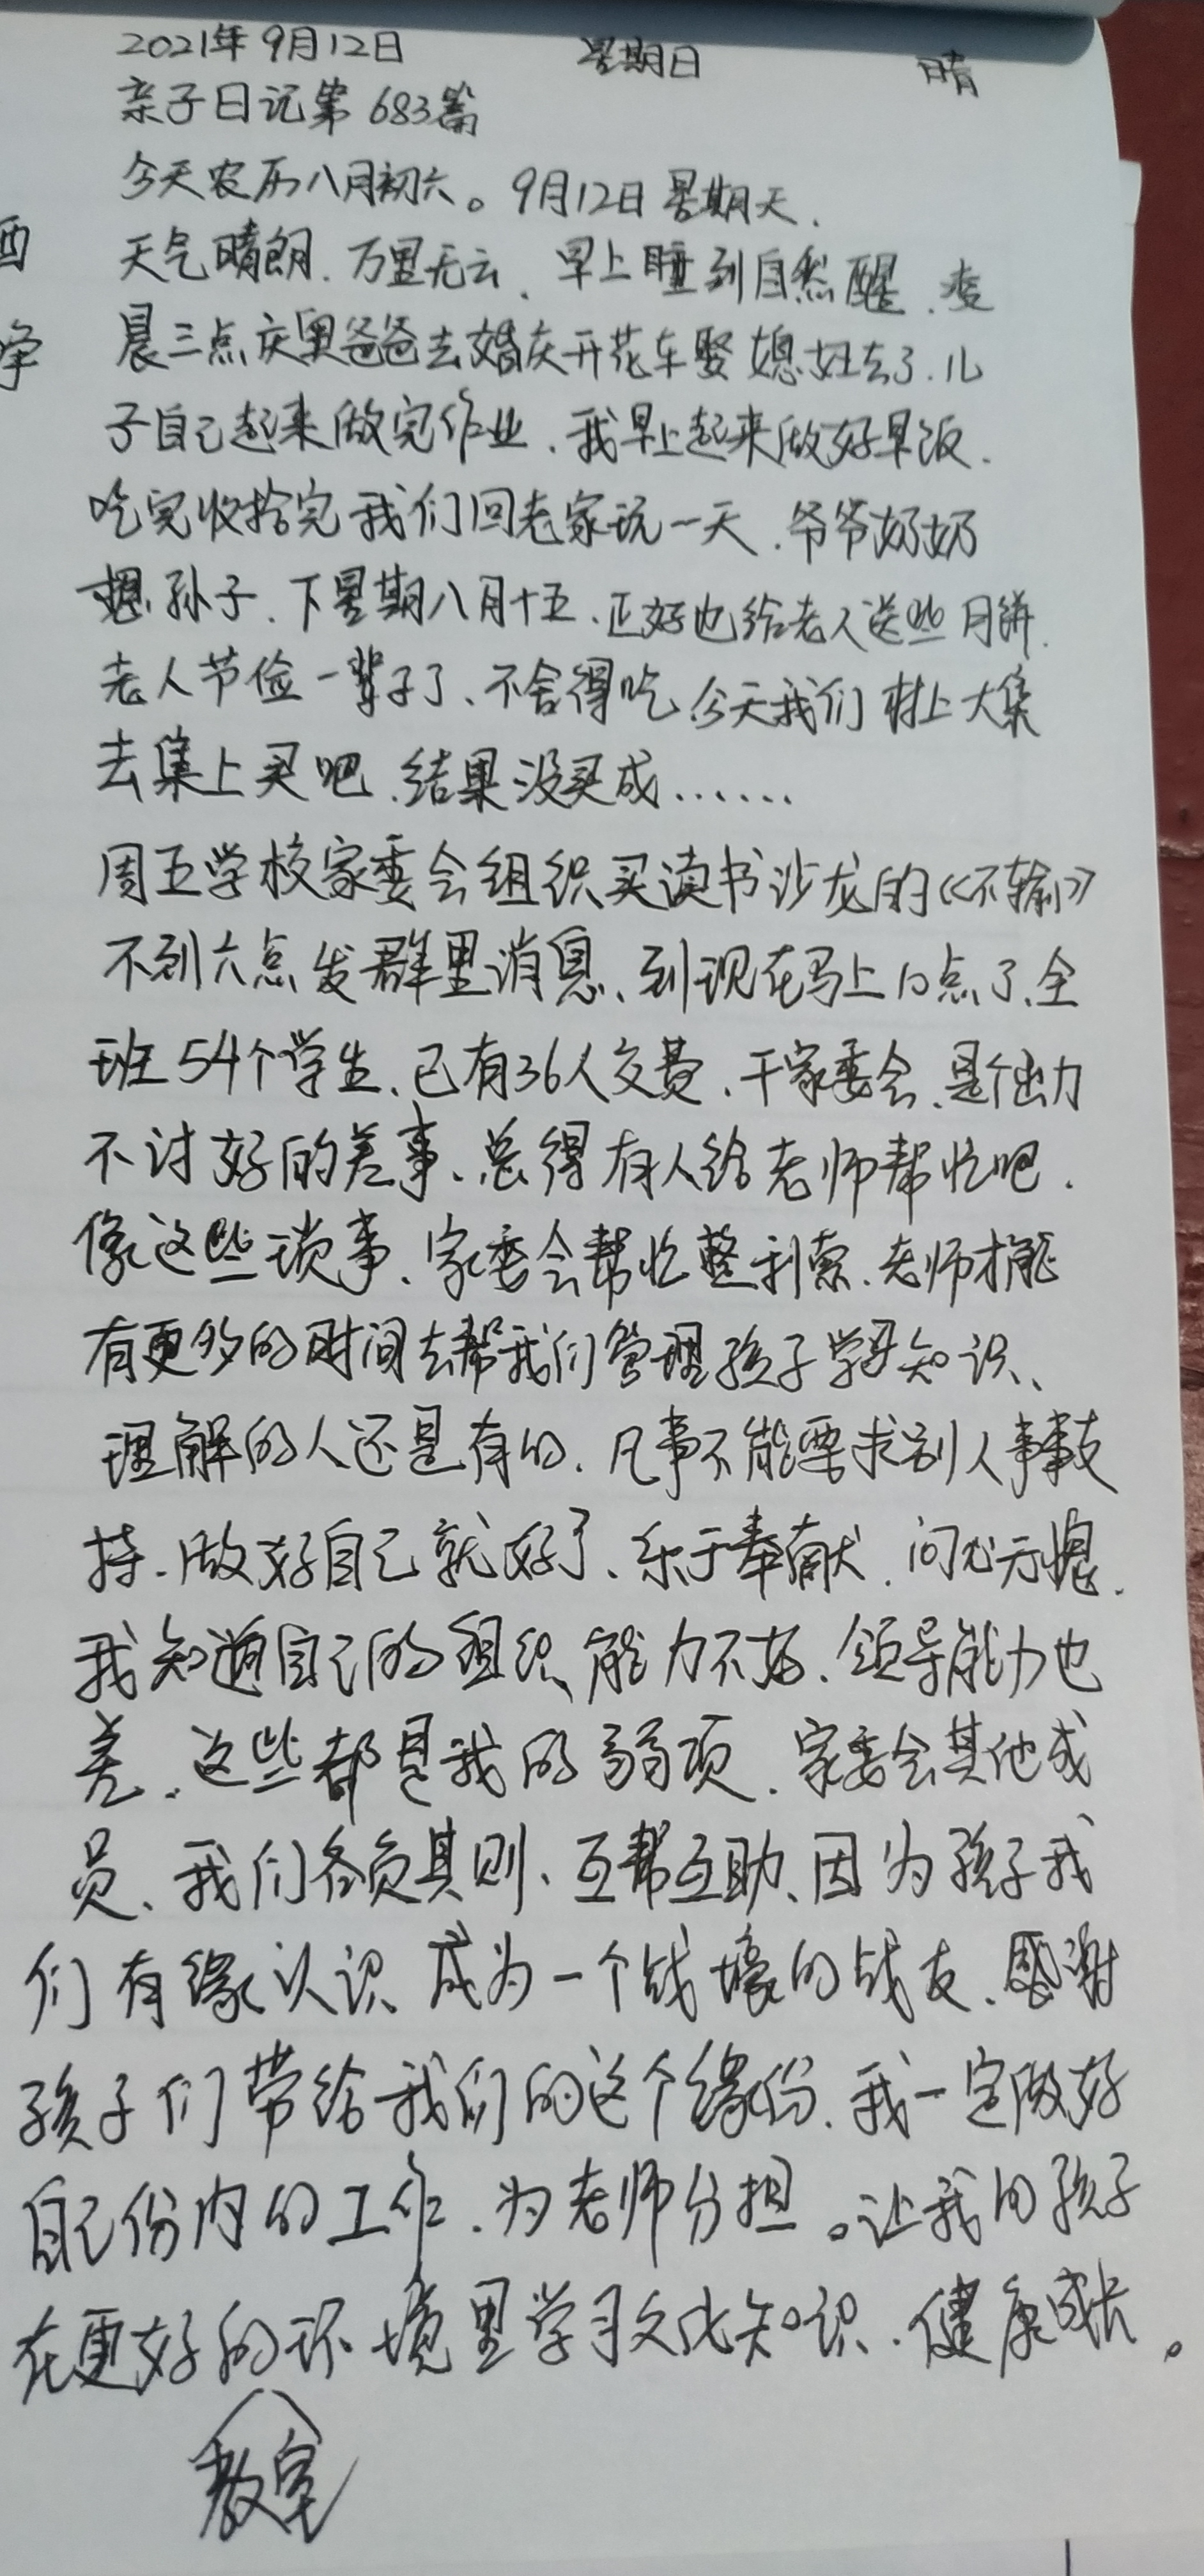 2021年9月12日 星期日 晴
亲子日记第683篇
今天农历八月初六。9月12日星期天.
天气晴朗.万里无云、早上睡到自然醒.凌
晨三点庆奥爸爸去婚庆开花车娶媳妇去了.儿
子自己起来做完作业.我早上起来做好早饭.
吃完收拾完我们回老家玩一天.爷爷奶奶
想孙子.下星期八月十五.正好也给老人送些月饼.
老人节俭一辈子了、不舍得吃.今天我们村上大集
去集上买吧.结果没买成……
周五学校家委会组织买读书沙龙的《不输》
不到六点发群里消息、到现在马上10点了、全
班54个学生、已有36人交费.干家委会、是个出力
不讨好的差事、总得有人给老师帮忙吧.
像这些琐事、家委会帮忙整利索.老师才能
有更多的时间去帮我们管理孩子学习知识、
理解的人还是有的.凡事不能要求别人事事支
持.做好自己就好了、乐于奉献.问心无愧.
我知道自己的组织能力不好.领导能力也
差.这些都是我的弱项.家委会其他成
员、我们各负其则、互帮互助、因为孩子我
们有缘认识 成为一个战壕的战友.感谢
孩子们带给我们的这个缘份.我一定做好
自己份内的工作.为老师分担。让我的孩子
在更好的环境里学习文化知识.健康成长。
教室
西
净